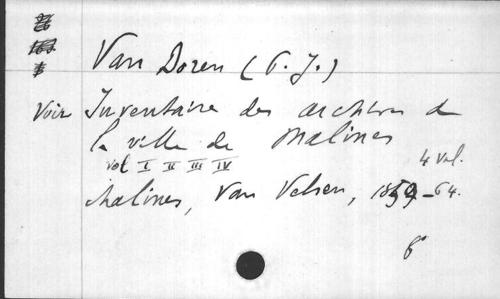 Van Doren (P. J.)
Voir Inventaire des archives de
la ville de Malines
vol I II III IV 4 vol.
Malines, Van Velsen, 1859-64.
8°